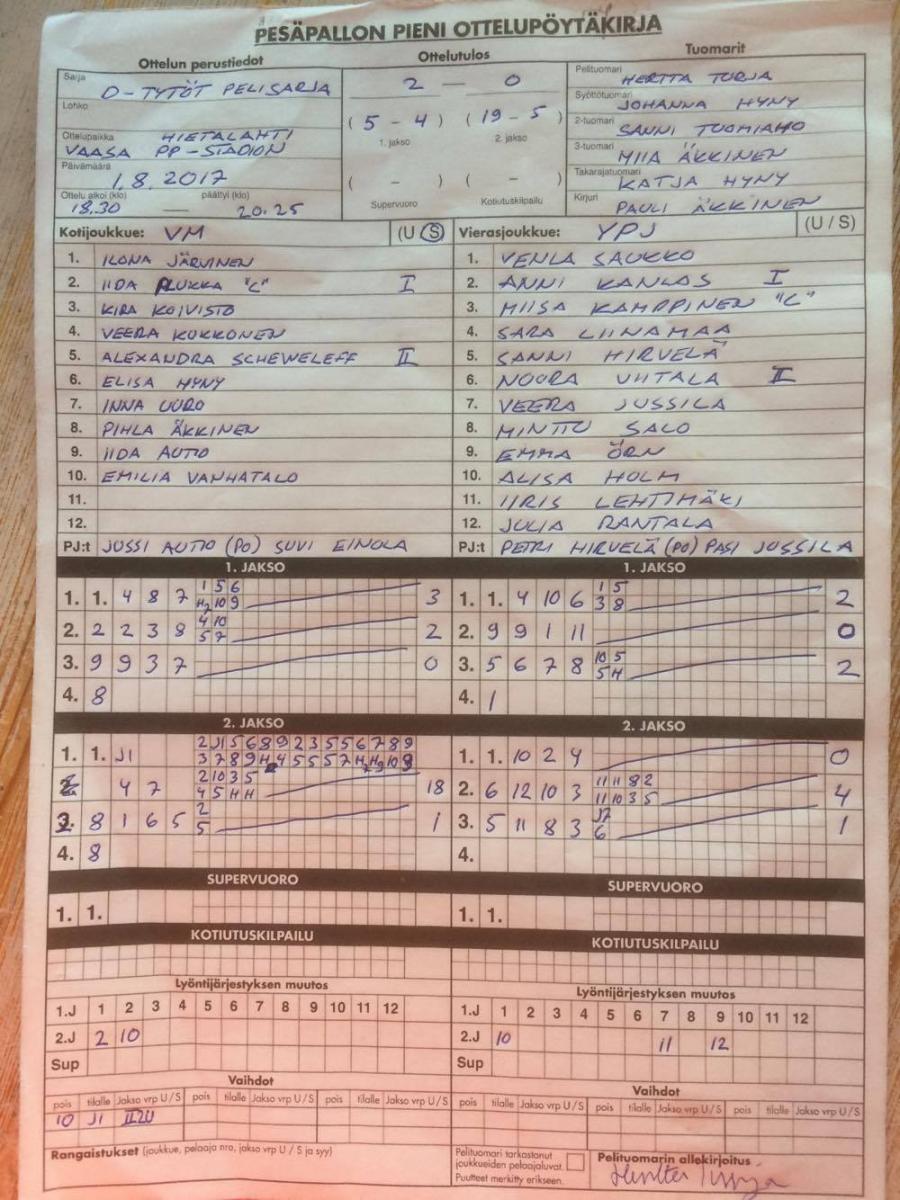 PESÄPALLON PIENI OTTELUPÖYTÄKIRJA
Ottelun perustiedot
Sarja D-TYTÖT PELISARJA
Lohko
Ottelupaikka HIETALAHTI
VAASA PP-STADION
Päivämäärä 1.8.2017
Ottelu alkoi (klo) päättyi (klo)
18.30 — 20.25
Ottelutulos
2 — 0
(5 - 4) (19 - 5)
1. jakso 2. jakso
( - ) ( - )
Supervuoro Kotiutuskilpailu
Tuomarit
Pelituomari HERTTA TURJA
Syöttötuomari JOHANNA HYNY
2-tuomari SANNI TUOMIAHO
3-tuomari MIIA ÄKKINEN
Takarajatuomari KATJA HYNY
Kirjuri PAULI ÄKKINEN
Kotijoukkue: VM (U/S)
1. ILONA JÄRVINEN
2. IIDA PLUKKA "C" I
3. KIRA KOIVISTO
4. VEERA KOKKONEN
5. ALEXANDRA SCHEWELEFF II
6. ELISA HYNY
7. INNA UURO
8. PIHLA ÄKKINEN
9. IIDA AUTIO
10. EMILIA VANHATALO
11.
12.
PJ:t JUSSI AUTIO (PO) SUVI EINOLA
Vierasjoukkue: YPJ (U / S)
1. VENLA SAUKKO
2. ANNI KANGAS I
3. MIISA KAMPPINEN "C"
4. SARA LIINAMAA
5. SANNI HIRVELÄ
6. NOORA UHTALA II
7. VEERA JUSSILA
8. MINTTU SALO
9. EMMA ÖRN
10. ALISA HOLM
11. IIRIS LEHTIMÄKI
12. JULIA RANTALA
PJ:t PETRI HIRVELÄ (PO) PASI JUSSILA
1. JAKSO
1. 1. 4 8 7 1 5 6 3
H2 10 9
2. 2 2 3 8 4 10 2
5 7
3. 9 9 3 7 0
4. 8
1. JAKSO
1. 1. 4 10 6 1 5 2
3 8
2. 9 9 1 11 0
3. 5 6 7 8 10 5 2
5 H
4. 1
2. JAKSO
1. 1. J1 2 J1 5 6 8 9 2 3 5 5 6 7 8 9
3 7 8 9 H 4 5 5 5 7 H H 10 9
4 7 2 10 3 5 18
4 5 H H
2. 8 1 6 5 2 1
5
4. 8
2. JAKSO
1. 1. 10 2 4 0
2. 6 12 10 3 11 11 8 2 4
11 10 3 5
3. 5 11 8 3 J7 1
6
4.
SUPERVUORO
1. 1.
SUPERVUORO
1. 1.
KOTIUTUSKILPAILU
KOTIUTUSKILPAILU
Lyöntijärjestyksen muutos
1.J 1 2 3 4 5 6 7 8 9 10 11 12
2.J 2 10
Sup
Lyöntijärjestyksen muutos
1.J 1 2 3 4 5 6 7 8 9 10 11 12
2.J 10 11 12
Sup
Vaihdot
pois tilalle Jakso vrp U / S pois tilalle Jakso vrp U / S pois tilalle Jakso vrp U / S
10 J1 II2U
Vaihdot
pois tilalle Jakso vrp U / S pois tilalle Jakso vrp U / S pois tilalle Jakso vrp U / S
Rangaistukset (joukkue, pelaaja nro, jakso vrp U / S ja syy)
Pelituomari tarkastanut
joukkueiden pelaajaluvat.
Puutteet merkitty erikseen.
Pelituomarin allekirjoitus